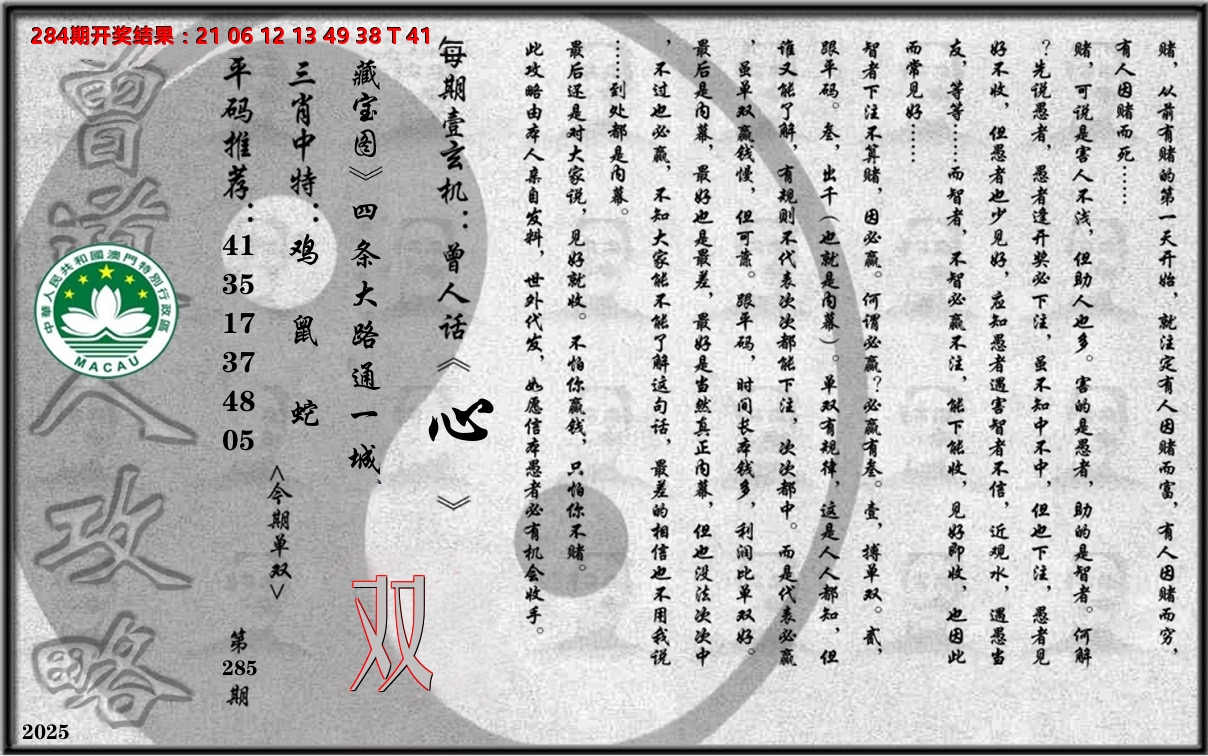 284期开奖结果：21 06 12 13 49 38 T 41
赌，从前有赌的第一天开始，就注定有人因赌而富，有人因赌而穷，
有人因赌而死……
赌，可说是害人不浅，但助人也多。害的是愚者，助的是智者。何解
？先说愚者，愚者逢开奖必下注，虽不知中不中，但也下注，愚者见
好不收，但愚者也少见好，应知愚者遇害智者不信，近观水，遇愚当
友，等等……而智者，不智必赢不注，能下能收，见好即收，也因此
而常见好……
智者下注不算赌，因必赢。何谓必赢？必赢有叁。壹，搏单双。贰，
跟平码。叁，出千（也就是内幕）。单双有规律，这是人人都知，但
谁又能了解，有规则不代表次次都能下注，次次都中。而是代表必赢
，虽单双赢钱慢，但可靠。跟平码，时间长本钱多，利润比单双好。
最后是内幕，最好也是最差，最好是当然真正内幕，但也没法次次中
，不过也必赢，不知大家能不能了解这句话，最差的相信也不用我说
……到处都是内幕。
最后还是对大家说，见好就收。不怕你赢钱，只怕你不赌。
此攻略由本人亲自发料，世外代发，如愿信本愚者必有机会收手。
每期壹玄机：曾人话《心》
藏宝图》四条大路通一城
三肖中特：鸡 鼠 蛇
平码推荐：41 35 17 37 48 05
<今期单双>
双
第285期
曾道人攻略
中華人民共和國澳門特別行政區
MACAU
2025